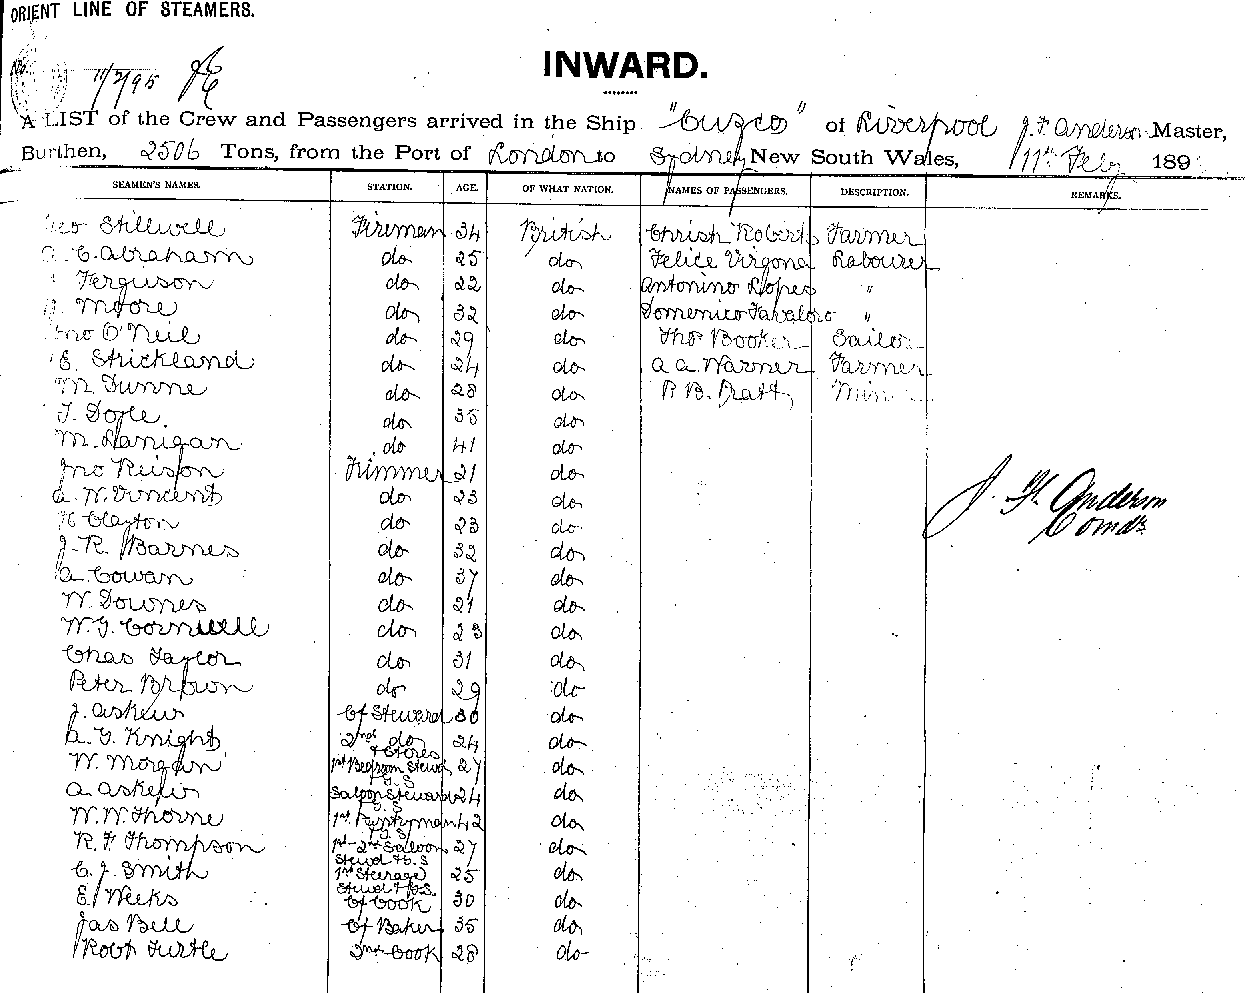 ORIENT LINE OF STEAMERS.
INWARD.
11/2/95
A LIST of the Crew and Passengers arrived in the Ship "Cuzco" of Liverpool J. F. Anderson Master,
Burthen, 2506 Tons, from the Port of London to Sydney New South Wales, 11th Feby 189
SEAMEN'S NAMES. STATION. AGE. OF WHAT NATION. NAMES OF PASSENGERS. DESCRIPTION. REMARKS.
Geo Stillwell Fireman 34 British Christn Roberts Farmer
C. Abraham do 25 do Felice Virgona Labourer
Ferguson do 22 do Antonino Lopes "
Moore do 32 do Domenico Tavaloro "
Jno O'Neil do 29 do Thos Booker Sailor
E. Strickland do 24 do A A Warner Farmer
M. Dunne do 28 do P. B. Pratt Miner
T. Doyle. do 35 do
M. Lanigan do 41 do
Jno Ruison Trimmer 21 do
A. W. Vincent do 23 do
H Clayton do 23 do
J. R. Barnes do 32 do
A. Cowan do 37 do
W. Downes do 21 do
W. G. Cornwell do 23 do
Chas Taylor do 31 do
Peter Brown do 29 do
J. Askew Cf Steward 36 do
A. G. Knight 2nd do 24 do
& Stores
W. Morgan 1st Bedroom Stewd 27 do
A. Askew Saloon Steward 24 do
W. W. Thorne 1st Pantryman 42 do
R. F. Thompson 1st-2nd Saloon 27 do
Stewd
C. J. Smith 1st Steerage 25 do
Stewd
E. Weeks Cf Cook 30 do
Jas Bell Cf Baker 35 do
Robt Turtle 2nd Cook 28 do
J. F. Anderson
Comdr